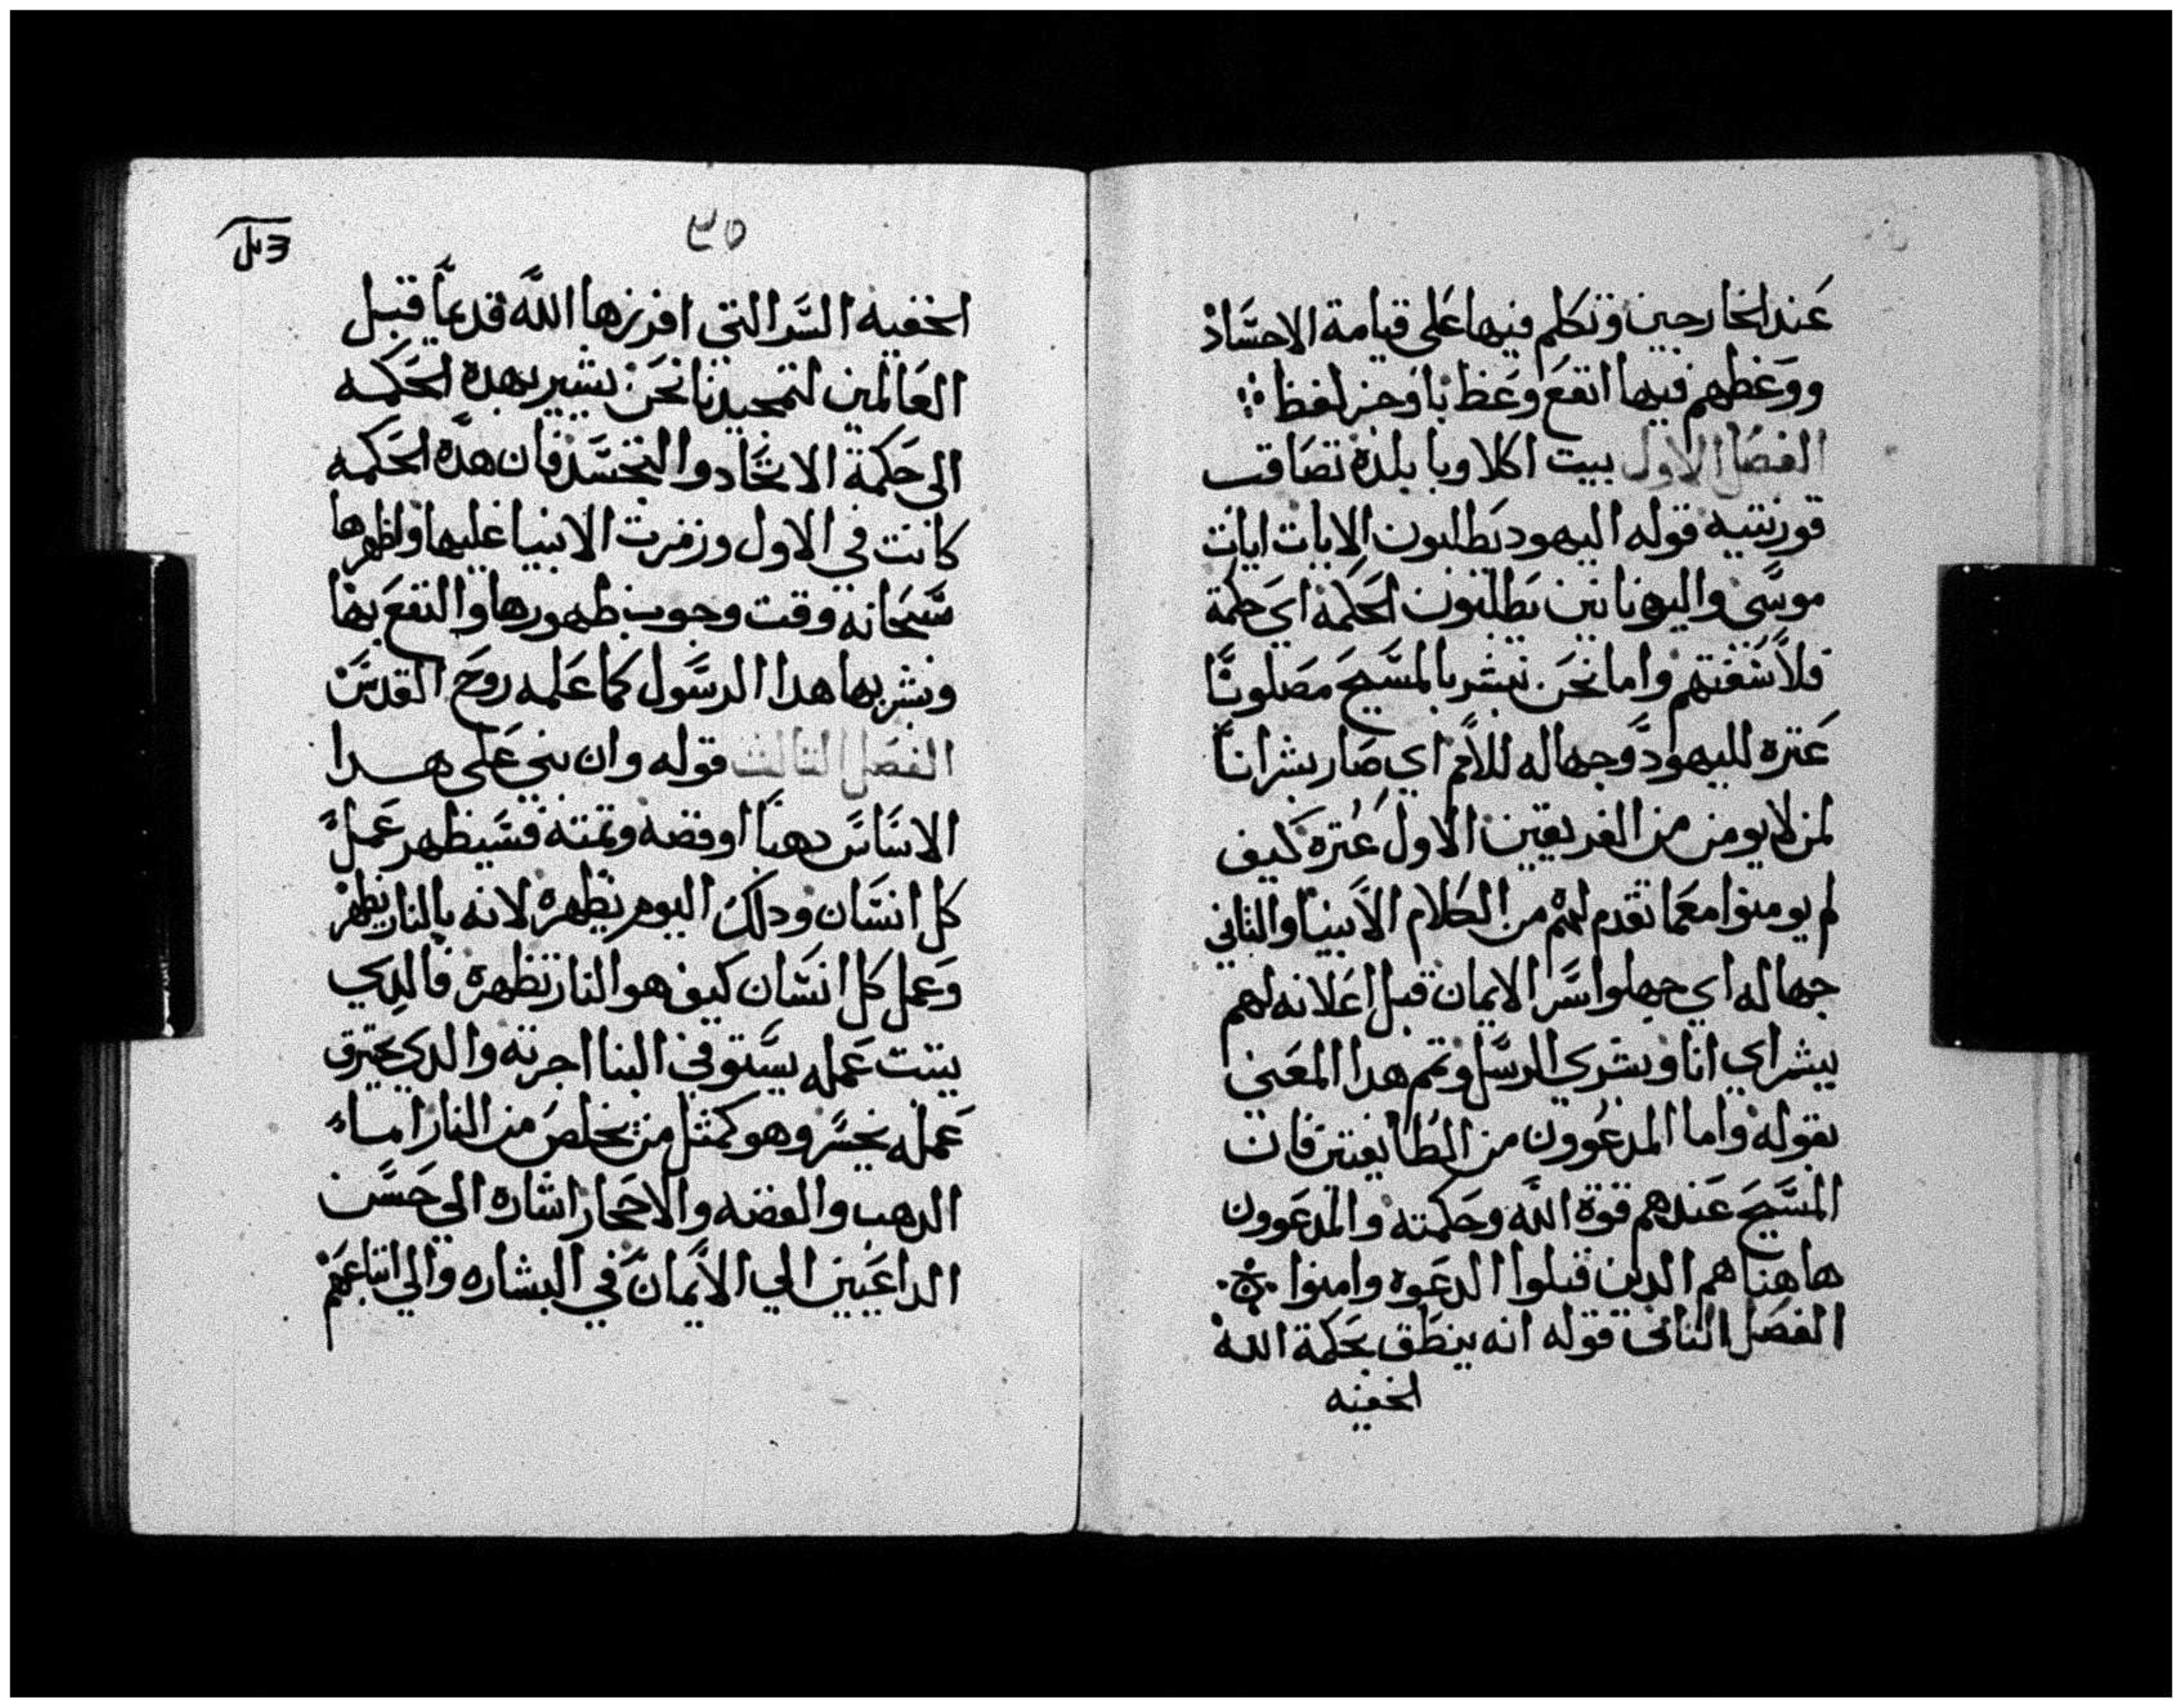 عند الخارجين وتكلم فيها على قيامة الاجساد
ووعظهم فيها انفع وعظ باوجز لفظ
الفصل الاول بيت اكلاوبا بلدة تصاقب
قورنتيه قوله اليهود يطلبون الايات ايات
موسى واليونانين يطلبون الحكمة اي حكمة
فلاسفتهم واما نحن نبشر بالمسيح مصلوبًا
عتره لليهود وجهاله للامم اي صار بشرانًا
لمن لا يومن من الفريقين الاول عتره كيف
لم يومنوا معما تقدم لهم من الكلام الانبيا والثاني
جهاله اي جهلوا سر الايمان قبل اعلانه لهم
ببشراي انا وبشري الرسل وتمم هدا المعنى
بقوله واما المدعوون من الطايفتين فان
المسيح عندهم قوة الله وحكمته والمدعوون
هاهنا هم الدين قبلوا الدعوه وامنوا
الفصل الثاني قوله انه ينطق بحكمة الله
الخفيه
٣٥
الخفيه السر التي افرزها الله قديمًا قبل
العالمين لتمجيدنا نحن يشير بهده الحكمه
الى حكمة الاتحاد والتجسد فان هده الحكمه
كانت في الاول ورمزت الانبيا عليها واظهرها
سبحانه وقت وجوب ظهورها والنفع بها
وبشر بها هدا الرسول كما علمه روح القدس
الفصل الثالث قوله وان بني على هدا
الاساس دهبًا او فضه وتمته فسيظهر عمل
كل انسان ودلك اليوم يظهره لانه بالنار يظهر
وعمل كل انسان كيف هو النار تظهره فالدي
يتبت عمله يستوفي البنا اجرته والدي يحترق
عمله يخسر وهو كمثل من يخلص من النار اما
الدهب والفضه والاحجار اشاره الي حسن
الداعيين الي الايمان في البشاره والي اتباعهم